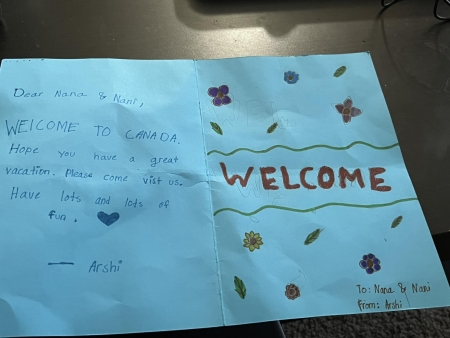 Dear Nana & Nani,
WELCOME TO CANADA.
Hope you have a great
vacation. Please come vist us.
Have lots and lots of
fun.
— Arshi
WELCOME
To: Nana & Nani
From: Arshi